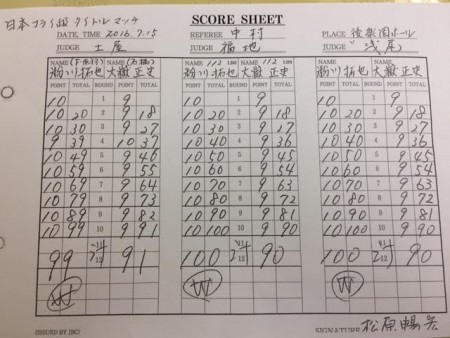 日本フライ級タイトルマッチ
SCORE SHEET
DATE, TIME 2016.7.15 REFEREE 中村 PLACE 後楽園ホール
JUDGE 土屋 JUDGE 福地 JUDGE 浅尾
NAME NAME NAME 112 LBS NAME 112 LBS NAME NAME
粉川拓也 大嶽正史 粉川拓也 大嶽正史 粉川拓也 大嶽正史
POINT TOTAL ROUND POINT TOTAL POINT TOTAL ROUND POINT TOTAL POINT TOTAL ROUND POINT TOTAL
10 1 9 10 1 9 10 1 9
10 20 2 9 18 10 20 2 9 18 10 20 2 9 18
10 30 3 9 27 10 30 3 9 27 10 30 3 9 27
9 39 4 10 37 10 40 4 9 36 10 40 4 9 36
10 49 5 9 46 10 50 5 9 45 10 50 5 9 45
10 59 6 9 55 10 60 6 9 54 10 60 6 9 54
10 69 7 9 64 10 70 7 9 63 10 70 7 9 63
10 79 8 9 73 10 80 8 9 72 10 80 8 9 72
10 89 9 9 82 10 90 9 9 81 10 90 9 9 81
10 99 10 9 91 10 100 10 9 90 10 100 10 9 90
99 91 100 90 100 90
W W W
ISSUED BY JBC SIGNATURE 松原暢宏